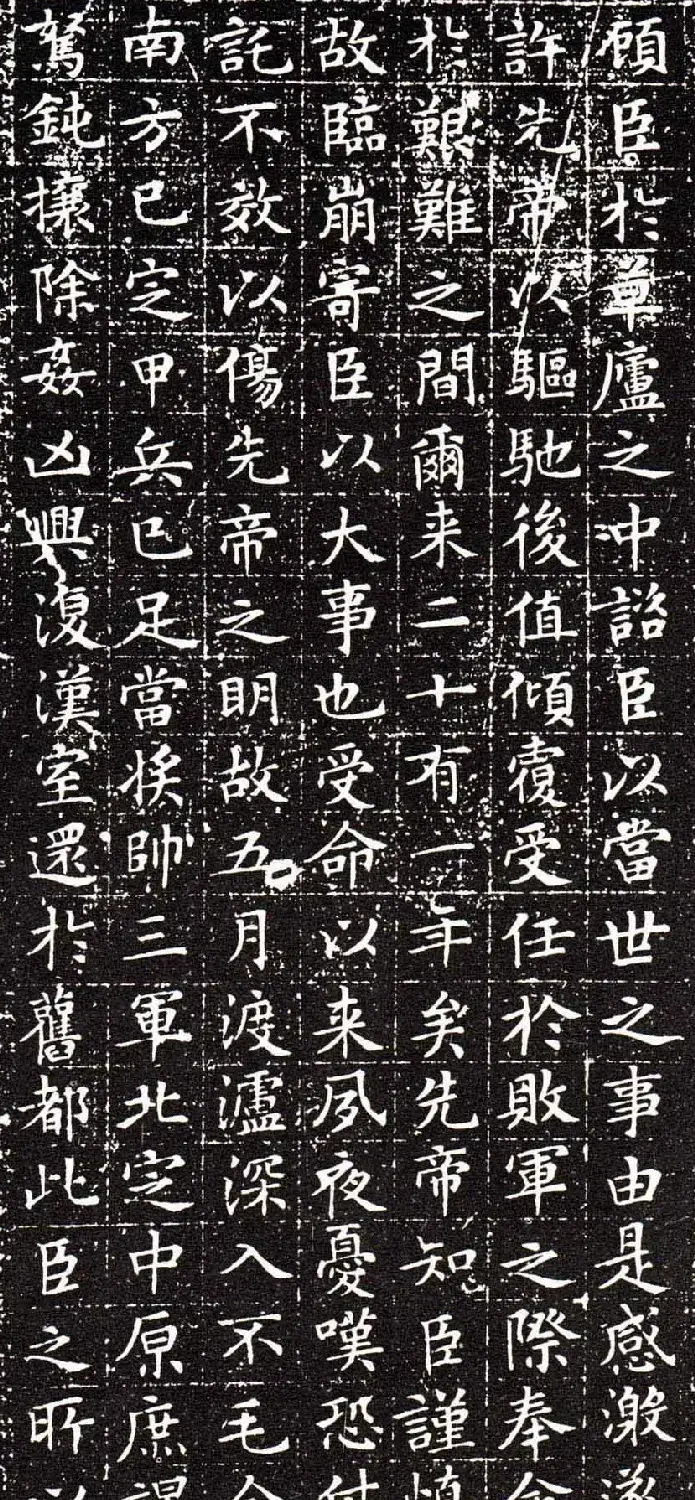 顧臣於草廬之中諮臣以當世之事由是感激遂
許先帝以驅馳後值傾覆受任於敗軍之際奉命
於艱難之間爾来二十有一年矣先帝知臣謹慎
故臨崩寄臣以大事也受命以来夙夜憂嘆恐付
託不效以傷先帝之明故五月渡瀘深入不毛今
南方已定甲兵已足當将帥三軍北定中原庶竭
駑鈍攘除姦凶興復漢室還於舊都此臣之所以